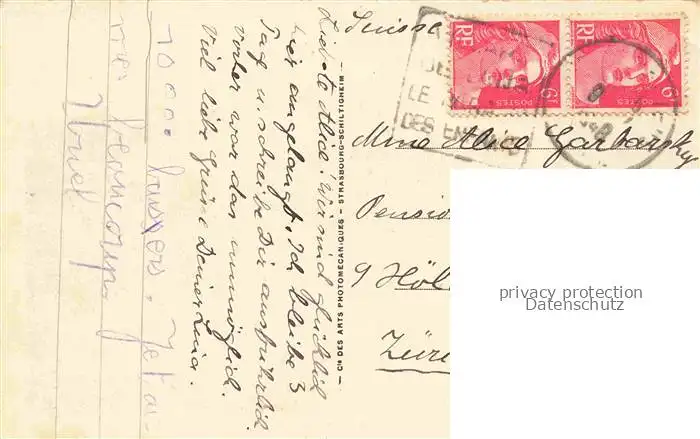 Liebste Alice! Wir sind glücklich
hier angelangt. Ich bleibe 3
Tag u. schreibe Dir ausführlich
vorher war das unmöglich.
Viel liebe Grüsse Deiner Luia.
10000 baisers. Je t'ai-
me beaucoup.
— Cie DES ARTS PHOTOMÉCANIQUES - STRASBOURG-SCHILTIGHEIM —
Suisse
RF
POSTES
6F
RF
POSTES
6F
LE
DES EN
Mme Alice Garbarsky
Pension
9 Höl
Züri
privacy protection
Datenschutz